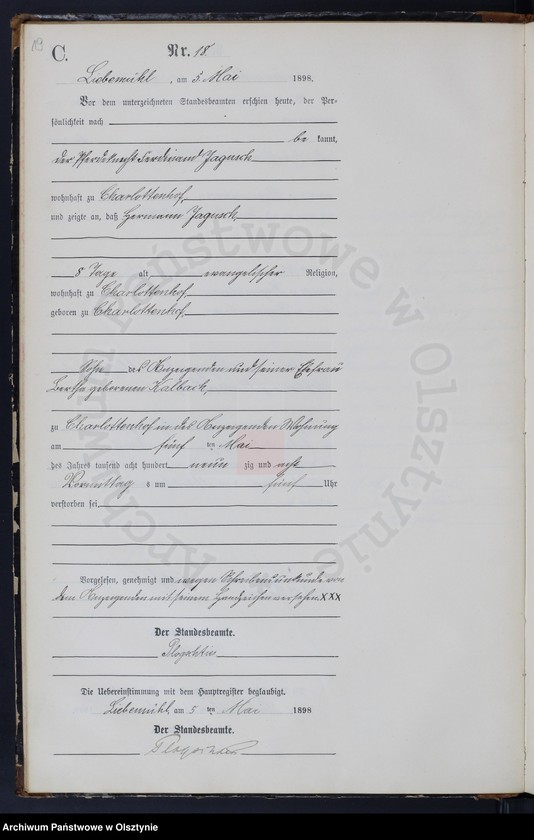 119
C.
Nr. 18.
Liebemühl, am 5. Mai 1898.
Vor dem unterzeichneten Standesbeamten erschien heute, der Per-
sönlichkeit nach
be kannt,
der Pferdeknecht Ferdinand Jagusch
wohnhaft zu Charlottenhof,
und zeigte an, daß Hermann Jagusch,
8 Tage alt evangelischer Religion,
wohnhaft zu Charlottenhof,
geboren zu Charlottenhof,
Sohn des Anzeigenden und seiner Ehefrau
Bertha geborenen Kalbach,
zu Charlottenhof in des Anzeigenden Wohnung
am fünf ten Mai
des Jahres tausend acht hundert neun zig und acht
Vormittag s um fünf Uhr
verstorben sei.
Vorgelesen, genehmigt und wegen Schreibensunkunde von
dem Anzeigenden mit seinem Handzeichen versehen XXX
Der Standesbeamte.
Die Uebereinstimmung mit dem Hauptregister beglaubigt.
Liebemühl, am 5 ten Mai 1898
Der Standesbeamte.
Archiwum Państwowe w Olsztynie
Archiwum Państwowe w Olsztynie